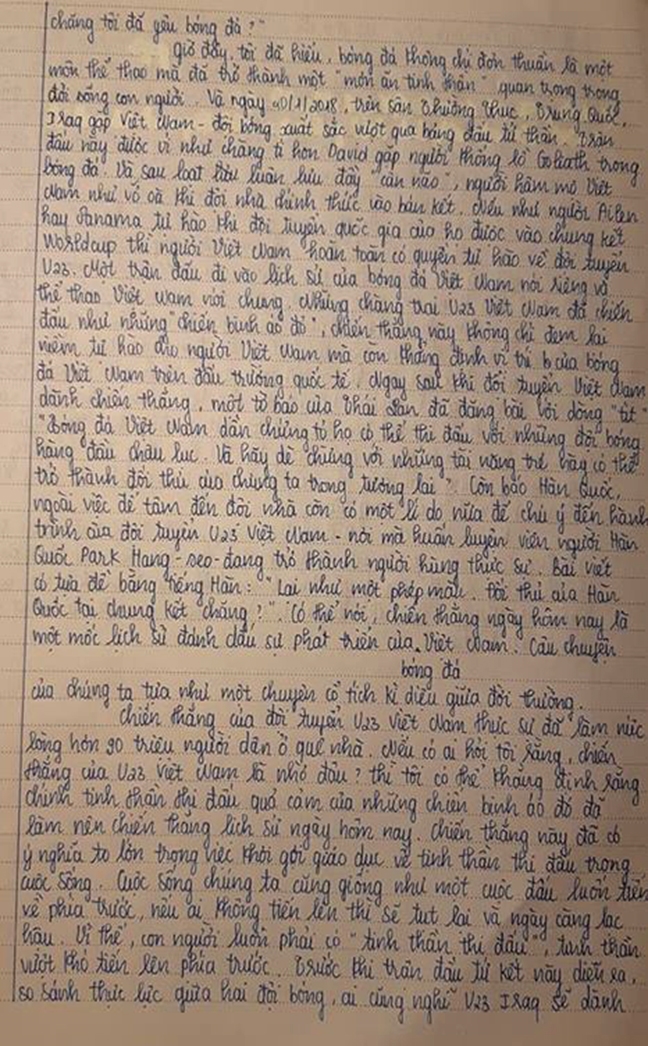 chăng tôi đã yêu bóng đá?"
giờ đây, tôi đã hiểu, bóng đá không chỉ đơn thuần là một
môn thể thao mà đã trở thành một "món ăn tinh thần" quan trọng trong
đời sống con người. Và ngày 20/1/2018, trên sân Thường Thục, Trung Quốc,
Iraq gặp Việt Nam - đội bóng xuất sắc vượt qua bảng đấu tử thần. Trận
đấu này được ví như chàng tí hon David gặp người khổng lồ Goliath trong
bóng đá. Và sau loạt luân lưu đầy "cân não", người hâm mộ Việt
Nam như vỡ oà khi đội nhà chính thức vào bán kết. Nếu như người Ailen
hay Panama tự hào khi đội tuyển quốc gia của họ được vào chung kết
Worldcup thì người Việt Nam hoàn toàn có quyền tự hào về đội tuyển
U23. Một trận đấu đi vào lịch sử của bóng đá Việt Nam nói riêng và
thể thao Việt Nam nói chung. Những chàng trai U23 Việt Nam đã chiến
đấu như những "chiến binh áo đỏ", chiến thắng này không chỉ đem lại
niềm tự hào cho người Việt Nam mà còn khẳng định vị trí của bóng
đá Việt Nam trên đấu trường quốc tế. Ngay sau khi đội tuyển Việt Nam
dành chiến thắng, một tờ báo của Thái Lan đã đăng bài với dòng "tít"
"Bóng đá Việt Nam dần chứng tỏ họ có thể thi đấu với những đội bóng
hàng đầu châu lục. Và hãy dè chừng với những tài năng trẻ này có thể
trở thành đối thủ của chúng ta trong tương lai". Còn báo Hàn Quốc,
ngoài việc để tâm đến đội nhà còn có một lí do nữa để chú ý đến hành
trình của đội tuyển U23 Việt Nam - nơi mà huấn luyện viên người Hàn
Quốc Park Hang-seo - đang trở thành người hùng thực sự. Bài viết
có tựa đề bằng tiếng Hàn: "Lại như một phép mầu. Đối thủ của Hàn
Quốc tại chung kết chăng?". Có thể nói, chiến thắng ngày hôm nay là
một mốc lịch sử đánh dấu sự phát triển của Việt Nam. Câu chuyện
bóng đá
của chúng ta tựa như một chuyện cổ tích kì diệu giữa đời thường.
Chiến thắng của đội tuyển U23 Việt Nam thực sự đã làm nức
lòng hơn 90 triệu người dân ở quê nhà. Nếu có ai hỏi tôi rằng, chiến
thắng của U23 Việt Nam là nhờ đâu? thì tôi có thể khẳng định rằng
chính tinh thần thi đấu quả cảm của những chiến binh áo đỏ đã
làm nên chiến thắng lịch sử ngày hôm nay. Chiến thắng này đã có
ý nghĩa to lớn trong việc khơi gợi giáo dục về tinh thần thi đấu trong
cuộc sống. Cuộc sống chúng ta cũng giống như một cuộc đấu luôn tiến
về phía trước, nếu ai không tiến lên thì sẽ tụt lại và ngày càng lạc
hậu. Vì thế, con người luôn phải có "tinh thần thi đấu", tinh thần
vượt khó tiến lên phía trước. Trước khi trận đấu tứ kết này diễn ra,
so sánh thực lực giữa hai đội bóng, ai cũng nghĩ U23 Iraq sẽ dành